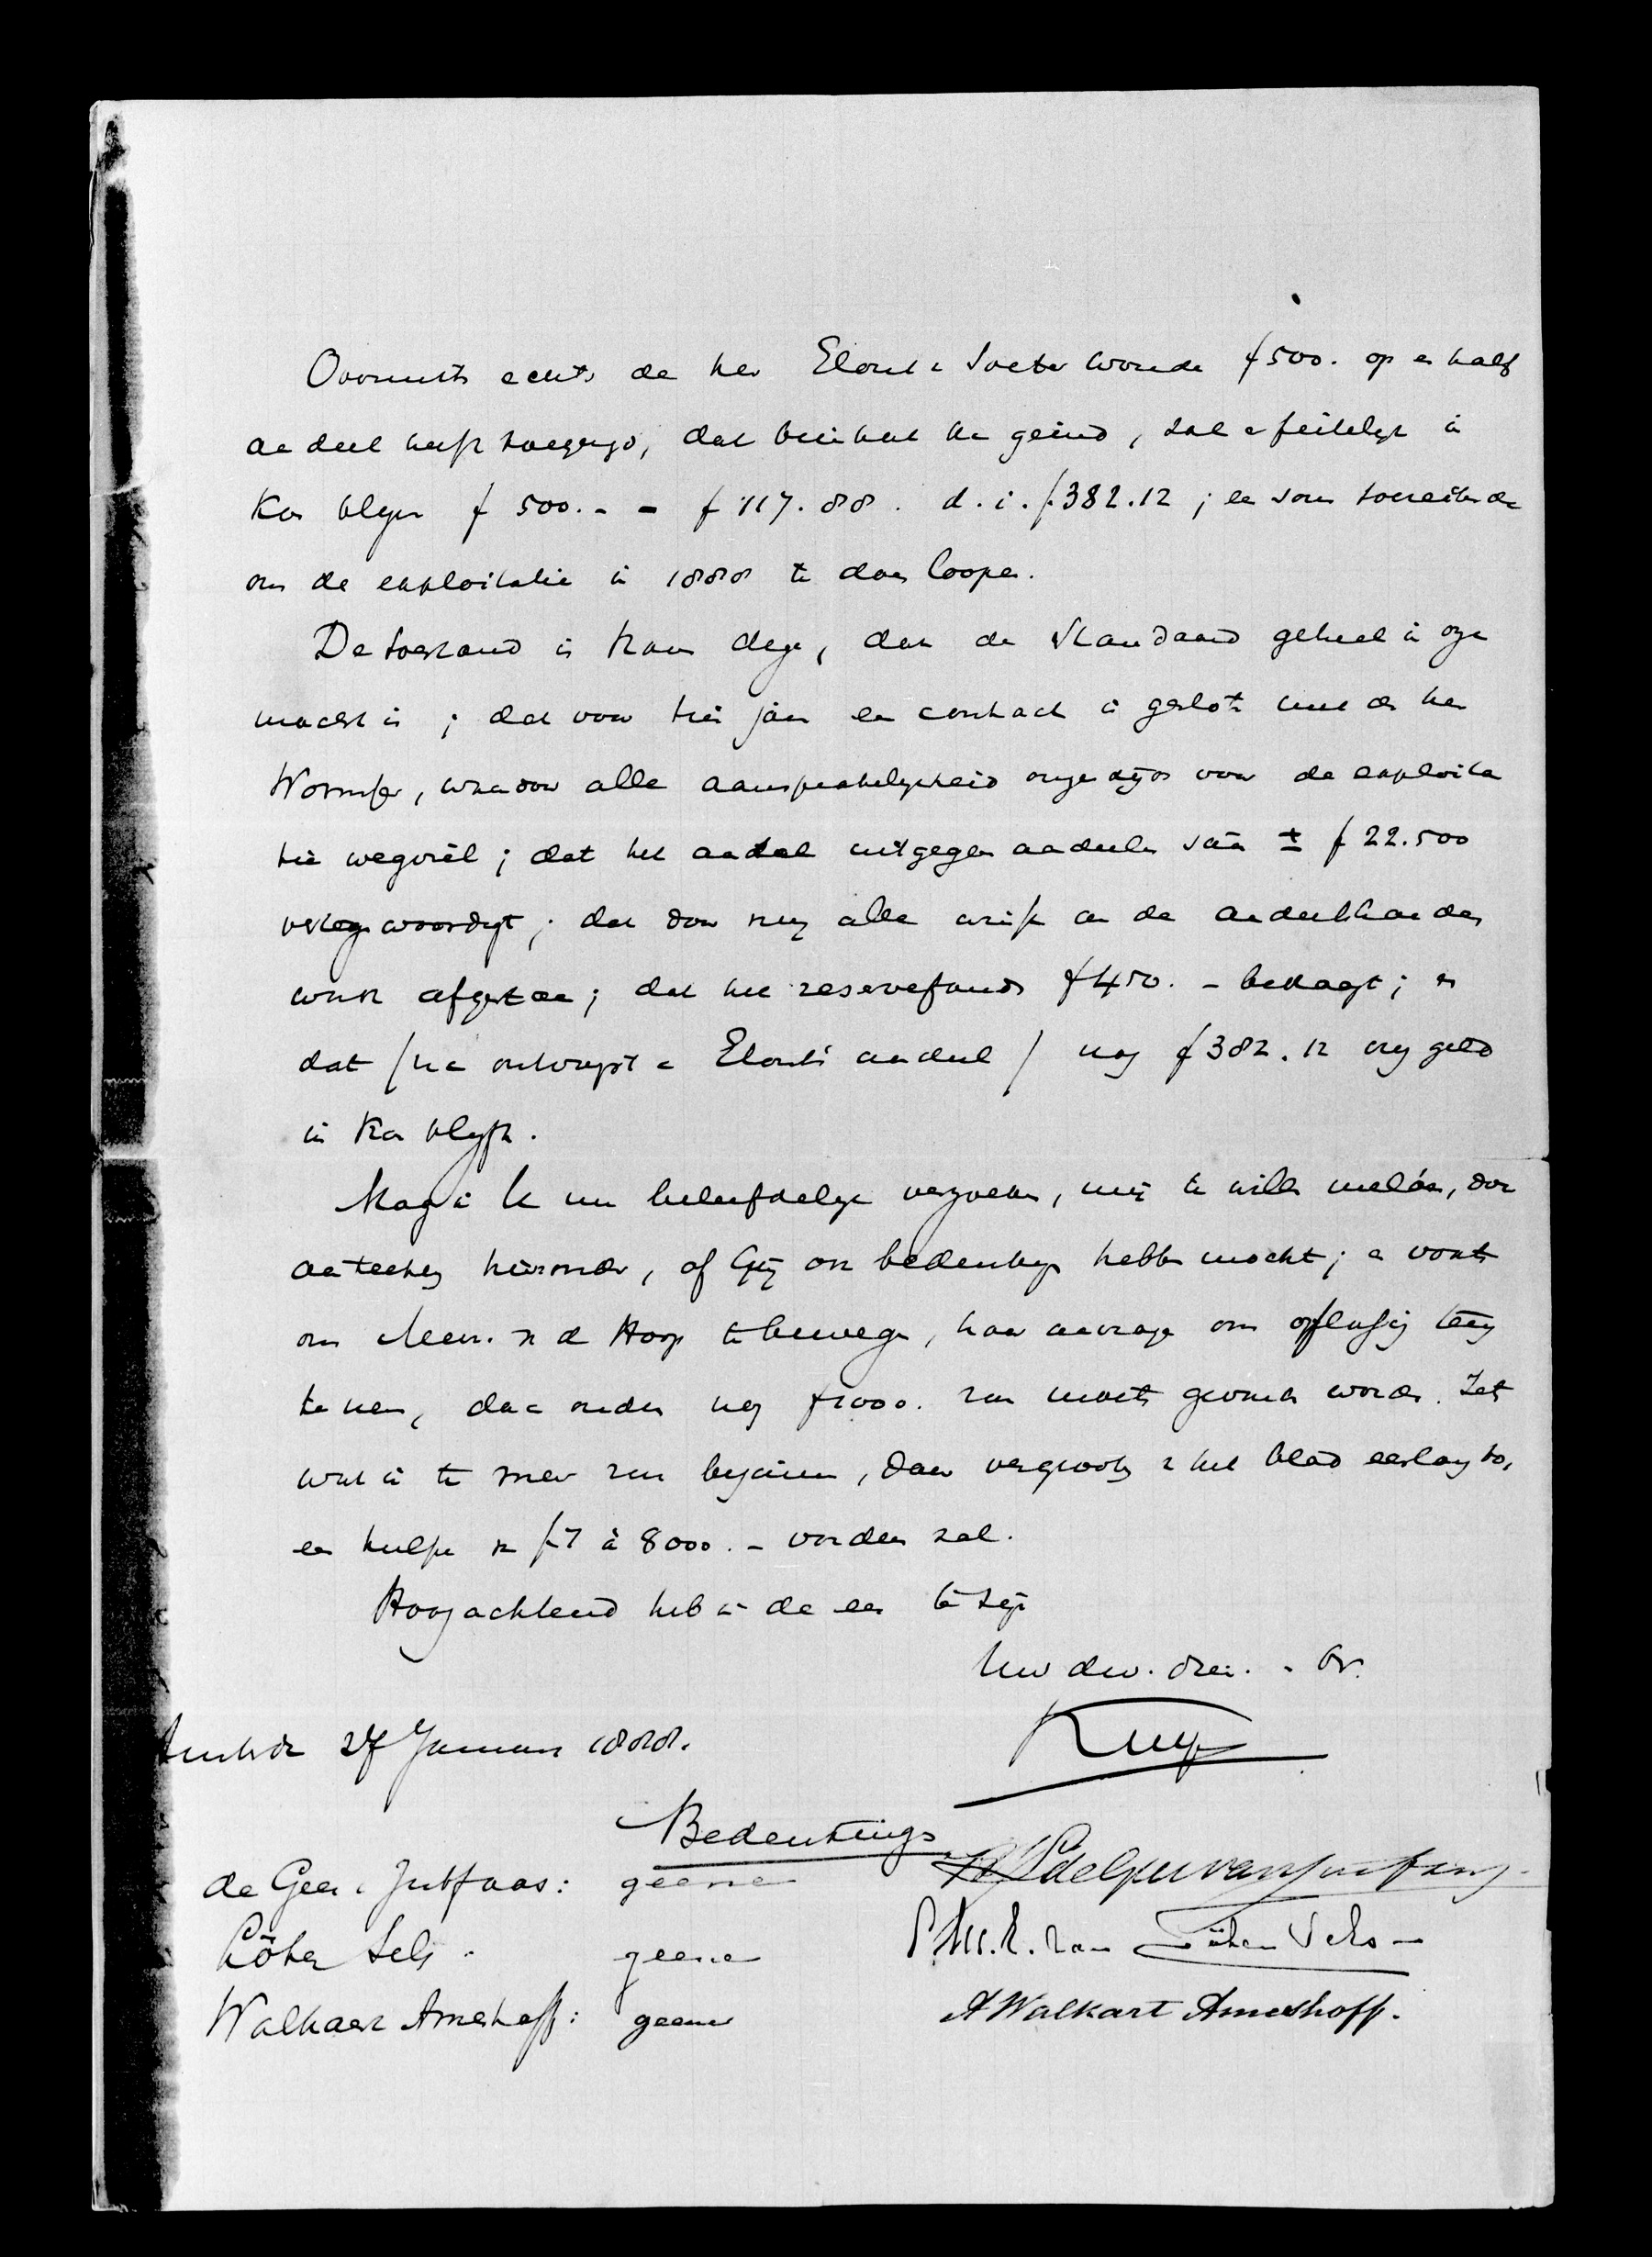 Overmits echts de heer Elout v Soeterwoude f 500. op en half
aandeel heeft toegezegd, dat binnen kan geind, zal er feitelijk in
Kas blijven f 500.- - f 117.88. d.i. f 382.12; een som toereikende
om de exploitatie in 1888 te doen loopen.
De toestand is thans deze, dat de Standaard geheel in onze
macht is; dat voor drie jaar een contract is gesloten met den heer
Wormser, waardoor alle aansprakelijkheid onzerzijds voor de exploita
tie wegviel; dat het aantal uitgegeven aandeelen van ± f 22.500
vertegenwoordigt; dat door mij alle winst aan de aandeelhouders
werd afgestaan; dat het reservefonds f 450.- bedraagt; en
dat (na ontvangst v Elout's aandeel) nog f 382.12 vrij geld
in Kas blijft.
Mag ik U nu beleefdelijk verzoeken, mij te willen melden, door
aanteekening hieronder, of Gij ook bedenking hebben mocht; en voorts
om Mevr. v d Hoop te bewegen, haar aanvrage om aflossing terug
te nemen, daar anders nog f 1000. zou moeten gevonden worden. Iets
wat ik te meer zou bejammeren, daar vergrooting v het blad eerlang toch
een hulpe van f 7 à 8000.- vorderen zal.
Hoogachtend heb ik de eer te zijn
Uw dw. dien. - br.
Kuyper
Amsterdam 27 Januari 1888.
Bedenkingen
de Geer v Jutfaas: geene
geene
Walkart Ameshoff: geene A Walkart Ameshoff.